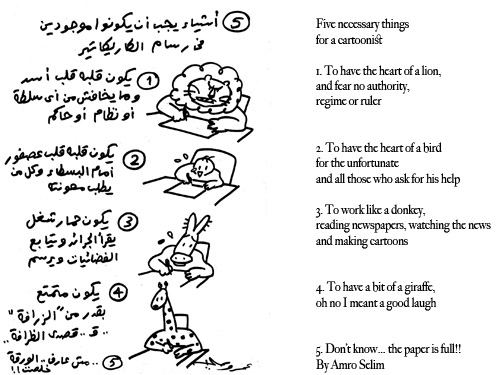 5 أشياء يجب أن يكونوا موجودين
فى رسام الكاريكاتير
1 يكون قلبه قلب أسد
وما يخافش من أى سلطة
أو نظام أو حاكم
2 يكون قلبه قلب عصفور
أمام البسطاء وكل من
يطلب معونته
3 يكون حمار شغل
يقرأ الجرائد ويتابع
الفضائيات ويرسم
4 يكون متمتع
بقدر من "الزرافة"
..ق.. قصدى الظرافة..
5 ..مش عارف.. الورقة
خلصت!!
Five necessary things
for a cartoonist
1. To have the heart of a lion,
and fear no authority,
regime or ruler
2. To have the heart of a bird
for the unfortunate
and all those who ask for his help
3. To work like a donkey,
reading newspapers, watching the news
and making cartoons
4. To have a bit of a giraffe,
oh no I meant a good laugh
5. Don't know... the paper is full!!
By Amro Selim